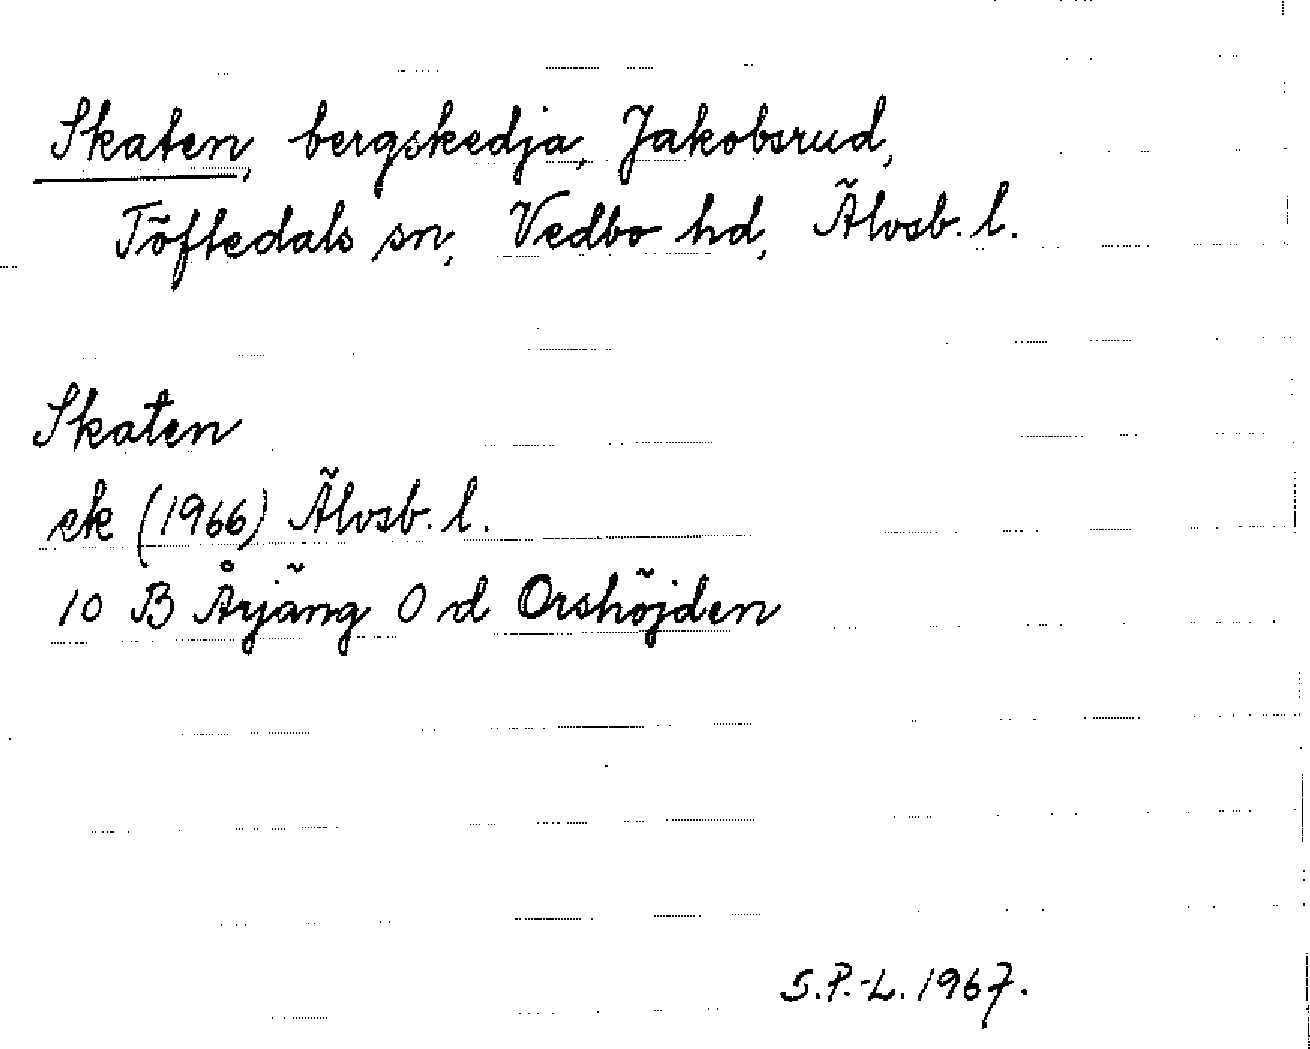 Skaten, bergskedja, Jakobsrud,
Töftedals sn, Vedbo hd, Älvsb. l.
Skaten
ek (1966) Älvsb. l.
10 B Årjäng 0 d Orshöjden
S.P.-L. 1967.